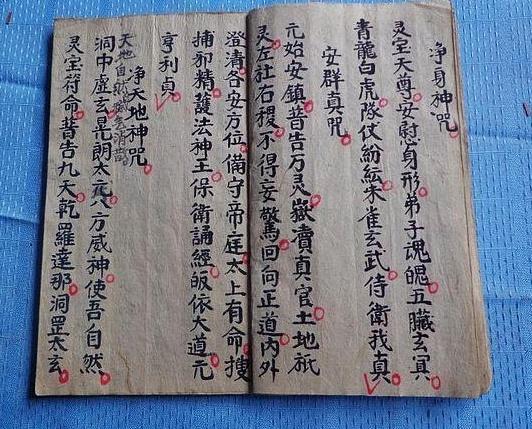 净身神咒
灵宝天尊安慰身形弟子魂魄五臟玄冥
青龍白虎隊仗紛紜朱雀玄武侍衛我真
安群真咒
元始安鎮普告万灵嶽瀆真官土地祇
灵左社右稷不得妄驚回向正道内外
澄清各安方位備守帝庭太上有命搜
捕邪精護法神王保衛誦經皈依大道元
亨利貞
净天地神咒
天地自然
洞中虚玄晃朗太元八方威神使吾自然
灵宝符命普告九天乾羅達那洞罡太玄